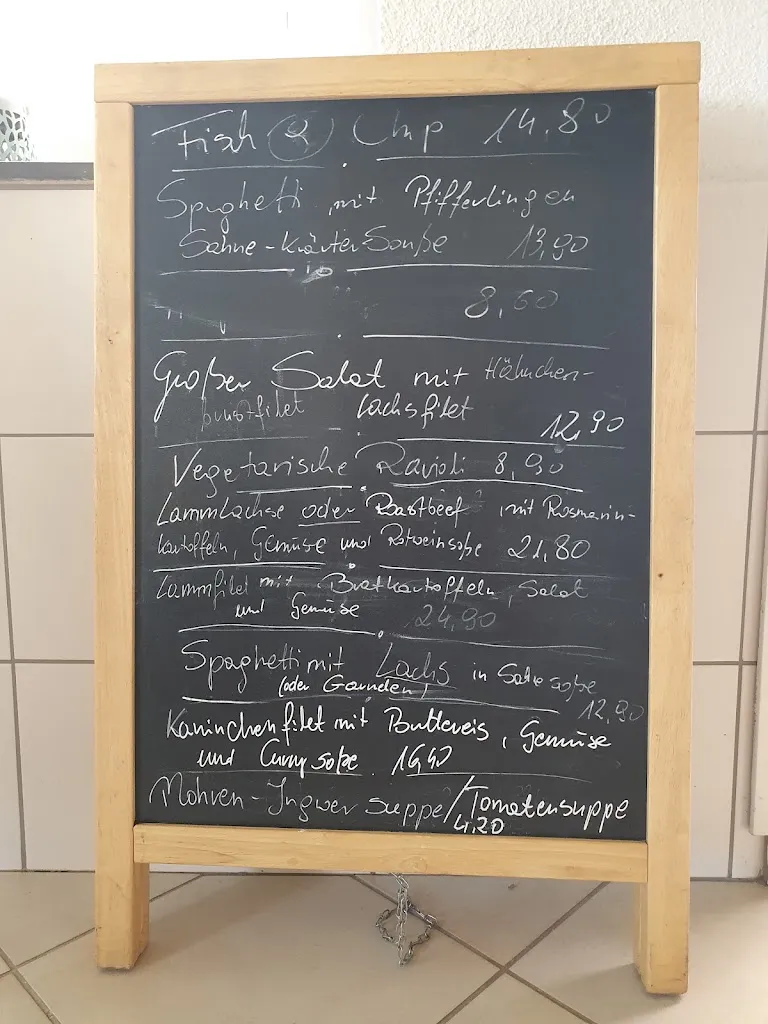 Fisch & Chip 14,80
Spaghetti mit Pfifferlingen
Sahne-Kräuter Souße 13,90
8,60
Großer Salat mit Hähnchen-
brustfilet Lachsfilet
12,90
Vegetarische Ravioli 8,90
Lammlachse oder Rastbeef mit Rosmarin-
kartoffeln, Gemüse und Rotweinsoße 21,80
Lammfilet mit Bratkartoffeln, Salat
und Gemüse 24,90
Spaghetti mit Lachs in Sahnesoße
(oder Garnelen) 12,90
Kaninchenfilet mit Butterreis, Gemüse
und Currysoße 16,40
Möhren-Ingwersuppe/Tomatensuppe
4,20